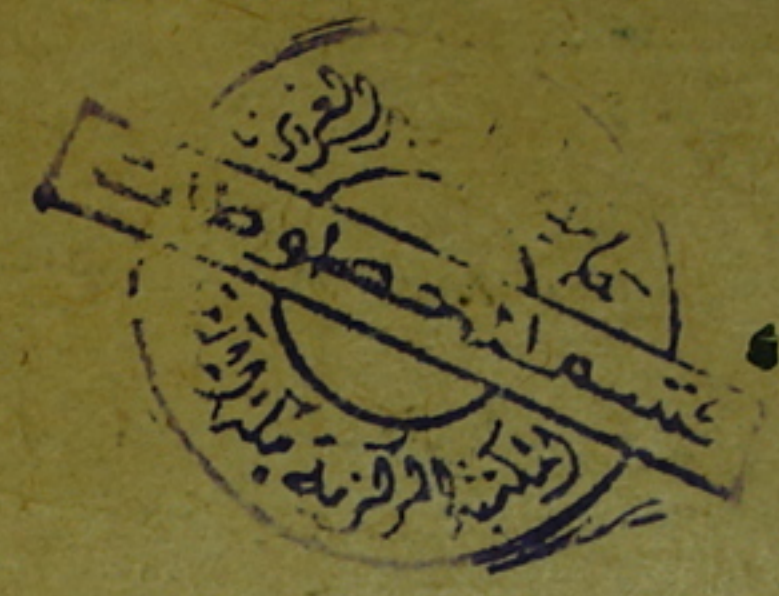 العزيز
قسم المخطوطات
المكتبة المركزية بمكة المكرمة